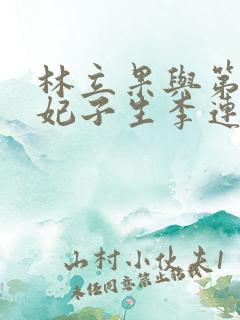 林立果與第
妃子生李連
山村小伙夫1
未任同意禁止转载